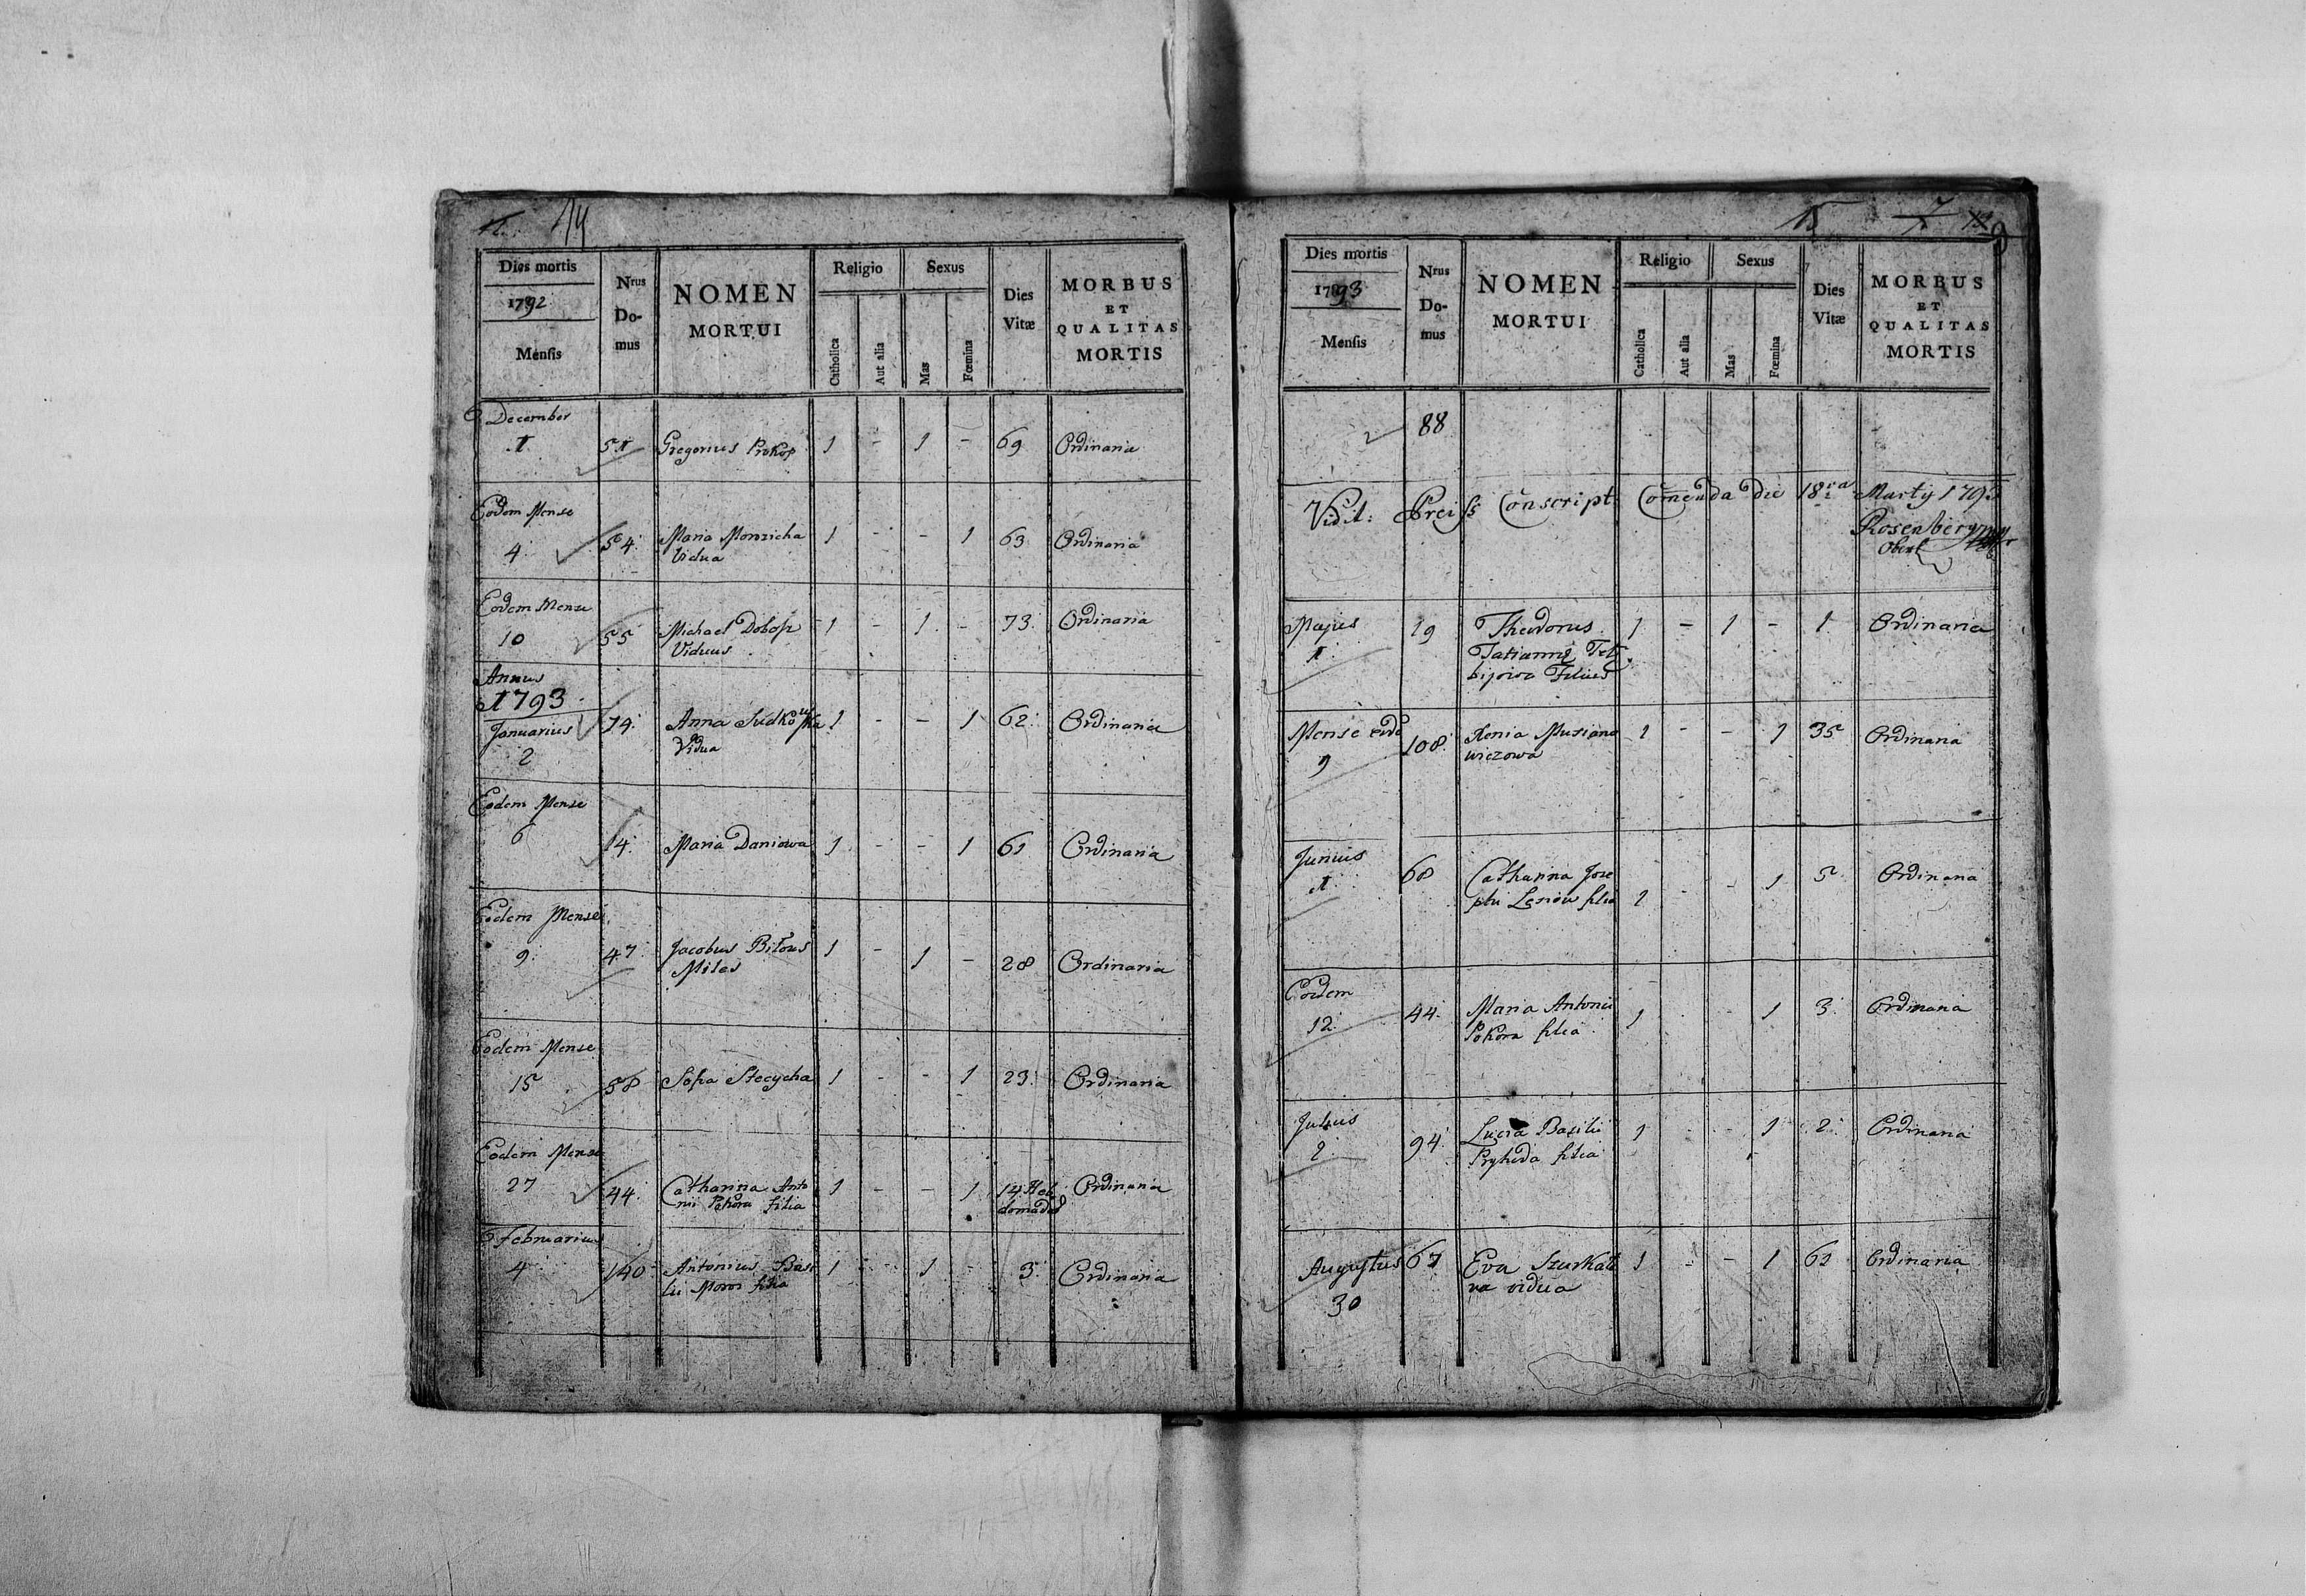 14
Dies mortis
1792
Mensis
Nrus
Do-
mus
NOMEN
MORTUI
Religio
Catholica
Aut alia
Sexus
Mas
Fœmina
Dies
Vitæ
MORBUS
ET
QUALITAS
MORTIS
December
1 51 Gregorius Prokop 1 - 1 - 69 Ordinaria
Eodem Mense
4 54 Maria 1 - - 1 63 Ordinaria
Vidua
Eodem Mense
10 55 Michael 1 - 1 - 73 Ordinaria
Viduus
Annus
1793
Januarius 74 Anna 1 - - 1 62 Ordinaria
2 Vidua
Eodem Mense
6 14 Maria Daniowa 1 - - 1 61 Ordinaria
Eodem Mense
9 47 Jacobus 1 - 1 - 28 Ordinaria
Miles
Eodem Mense
15 58 Sofia Stecycha 1 - - 1 23 Ordinaria
Eodem Mense
27 44 Catharina Anto 1 - - 1 14 Heb Ordinaria
nii Pokora filia domadas
Februarius
4 140 Antonius Basi 1 - 1 - 3 Ordinaria
lii Moroz
15
9
Dies mortis
1793
Mensis
Nrus
Do-
mus
NOMEN
MORTUI
Religio
Catholica
Aut alia
Sexus
Mas
Fœmina
Dies
Vitæ
MORBUS
ET
QUALITAS
MORTIS
88
Vidit: Conscript Comenda die 18va Martij 1793
Rosenberg
Majus 19 Theodorus 1 - 1 - 1 Ordinaria
1 Tatiannæ
Filius
Mense 108 Xenia 1 - - 1 35 Ordinaria
9 wiczowa
Junius 68 Catharina Jose 1 - - 1 5 Ordinaria
1 phi filia
Eodem
12 44 Maria Antonii 1 - 1 3 Ordinaria
Pokora filia
Julius
2 94 Lucia Basilii 1 - - 1 2 Ordinaria
filia
Augustus 67 Eva 1 - - 1 61 Ordinaria
30 vidua